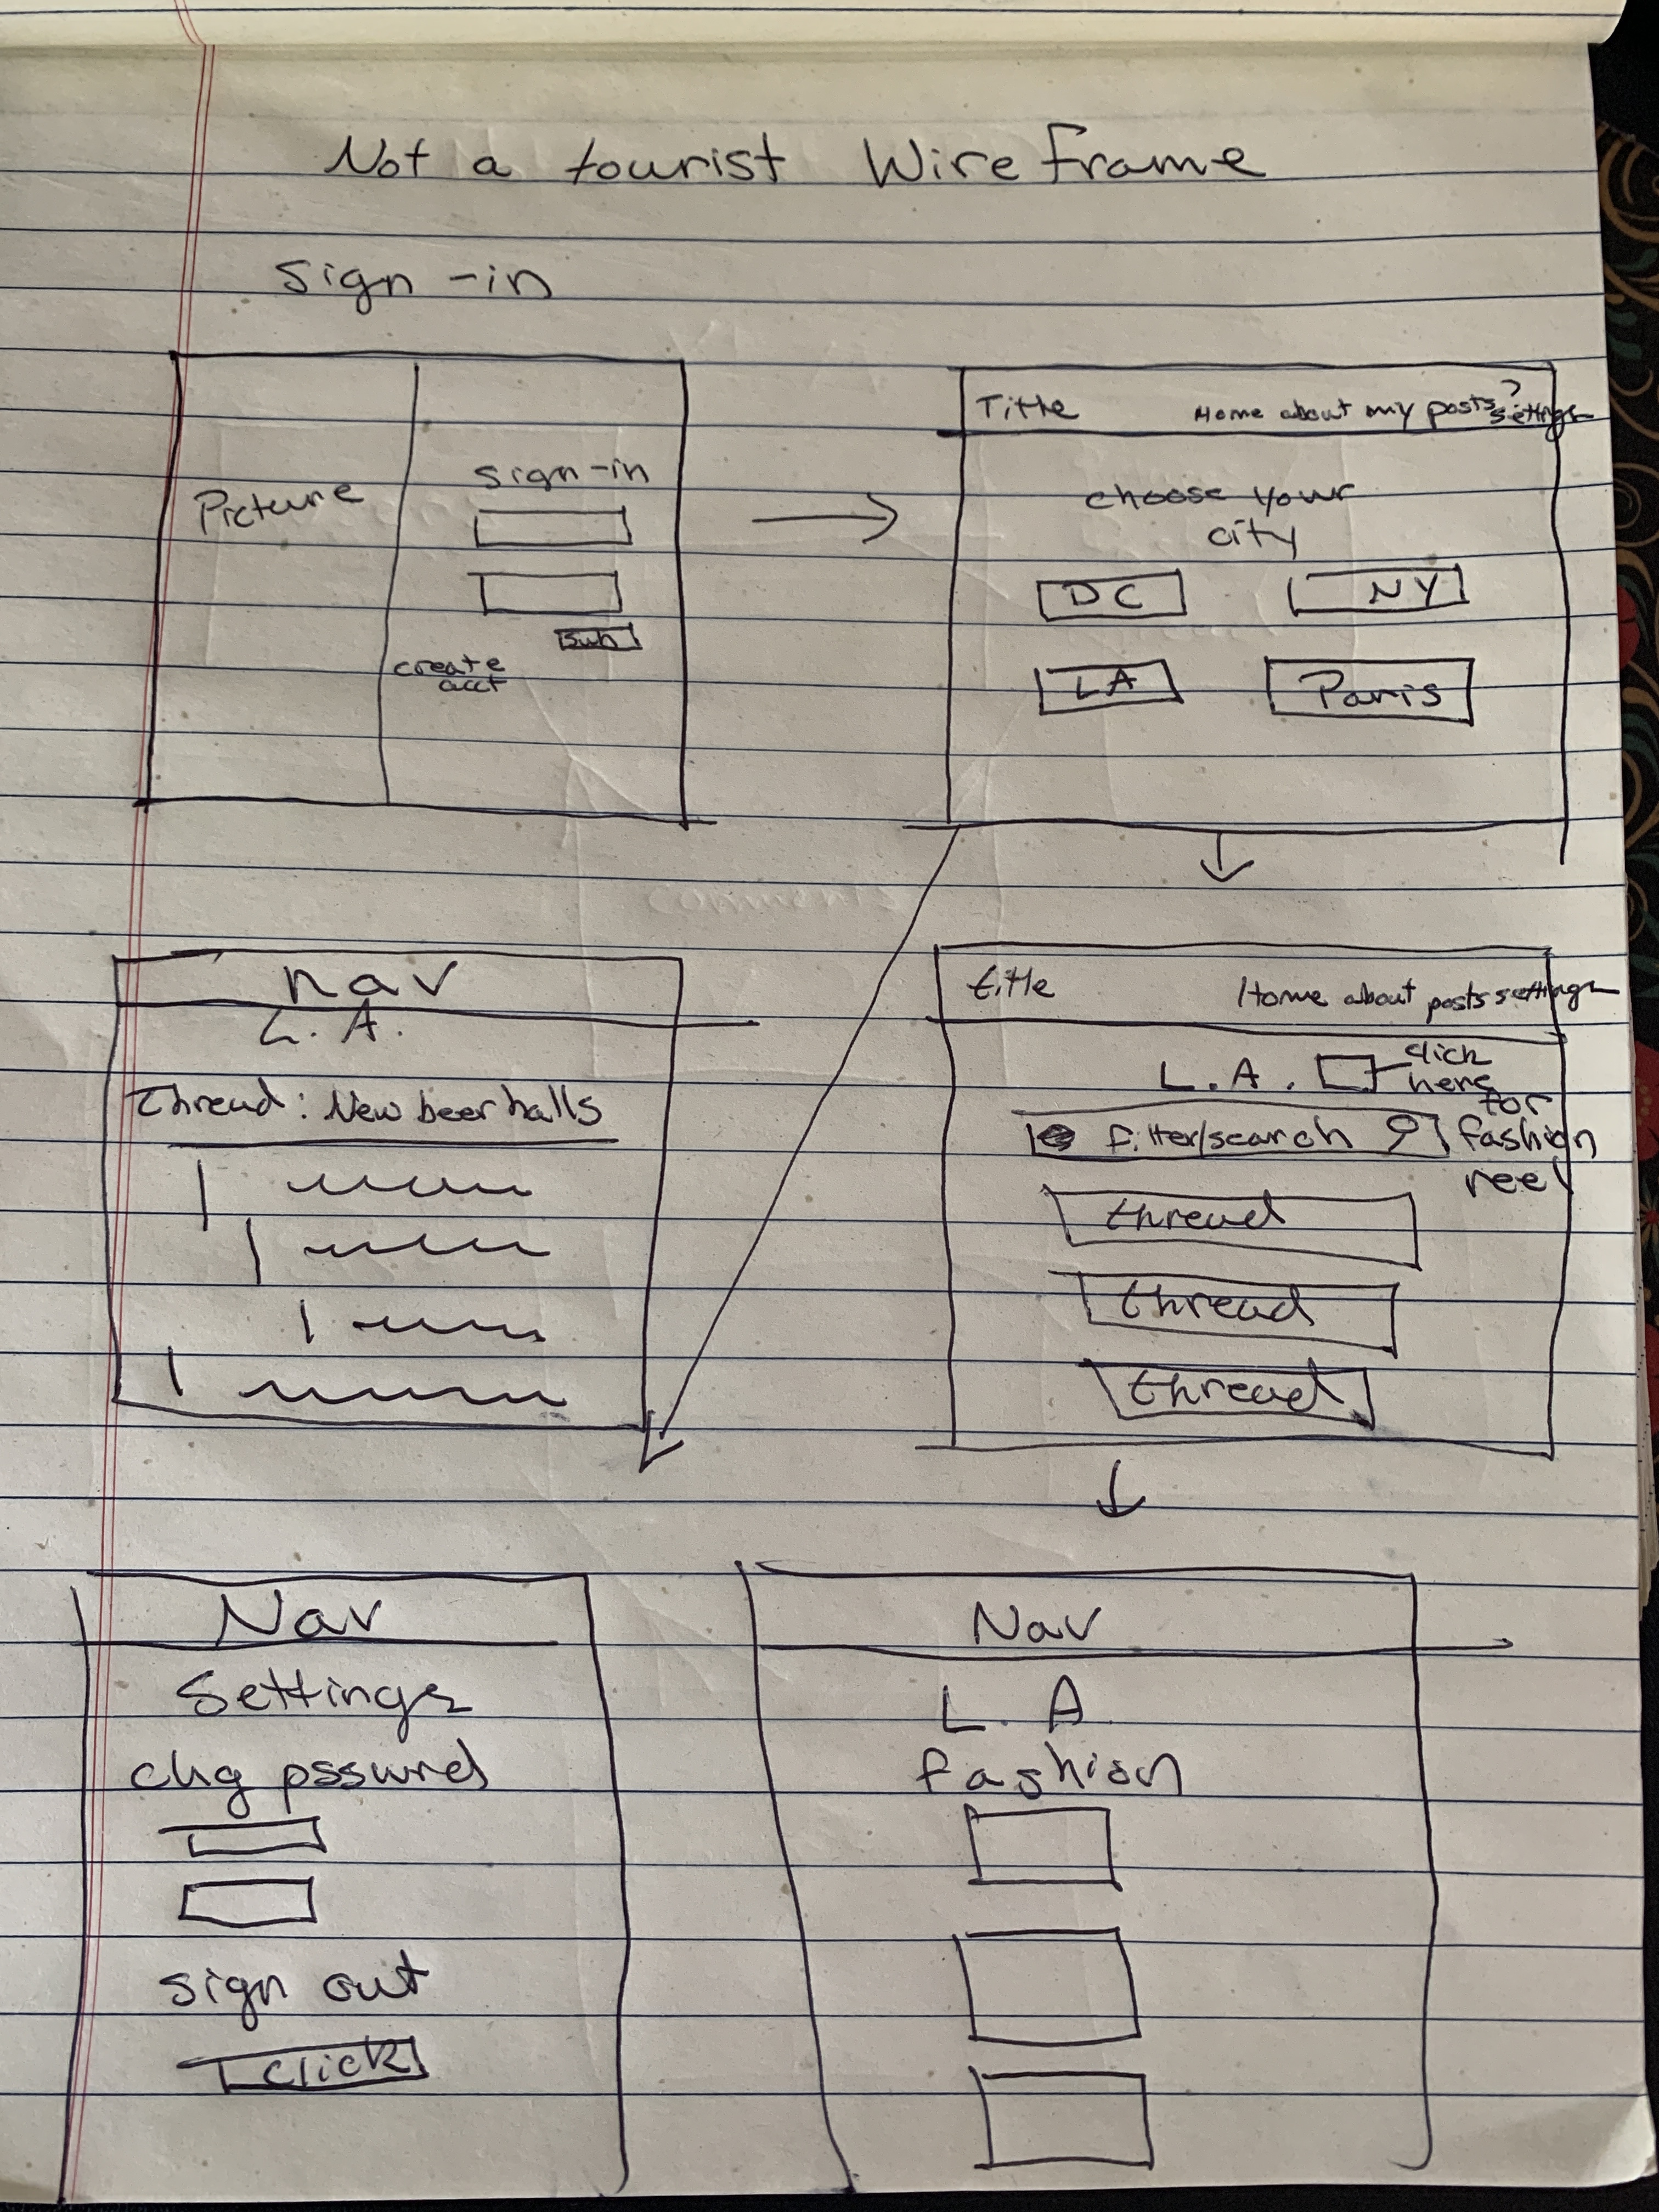 Not a tourist WireFrame
Sign-in
Picture
sign-in
Sub
create
acct
Title Home about my posts? settings
choose your
city
DC NY
LA Paris
nav
L.A.
thread: New beer halls
title Home about posts settings
L.A. click
here
for
filter/search fashion
reel
thread
thread
thread
Nav
Settings
chg psswrd
sign out
click
Nav
L.A
fashion